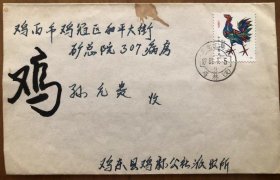 鸡西市鸡冠区和平大街
矿总院307病房
鸡
孙元贵 收
鸡东县鸡林公社派出所